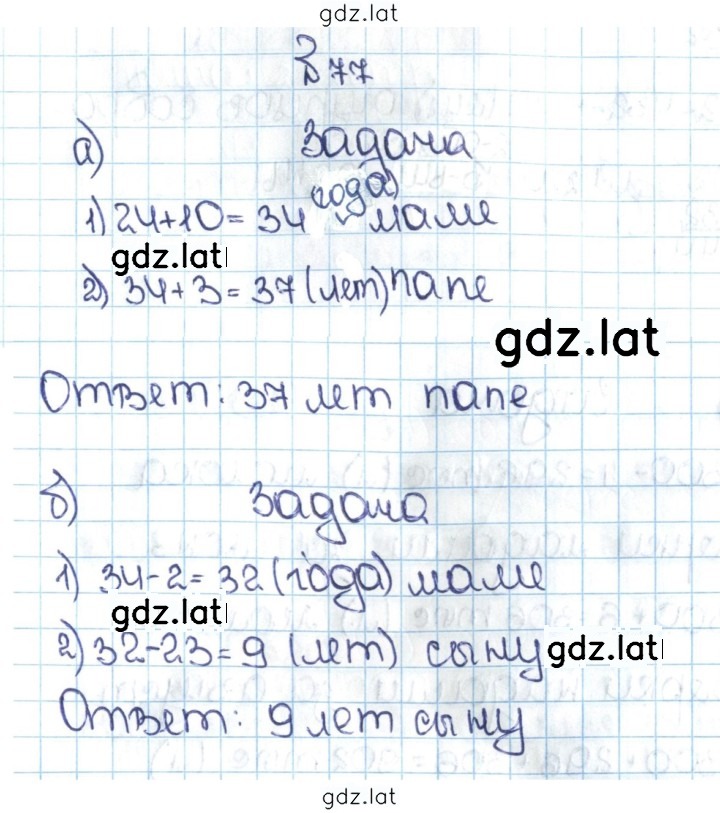 gdz.lat
77
а) Задача
1) 24+10= 34 (года) маме
gdz.lat
2) 34+3=37 (лет) папе
gdz.lat
Ответ: 37 лет папе
б) Задача
1) 34-2= 32 (года) маме
gdz.lat
2) 32-23=9 (лет) сыну gdz.lat
Ответ: 9 лет сыну
gdz.lat